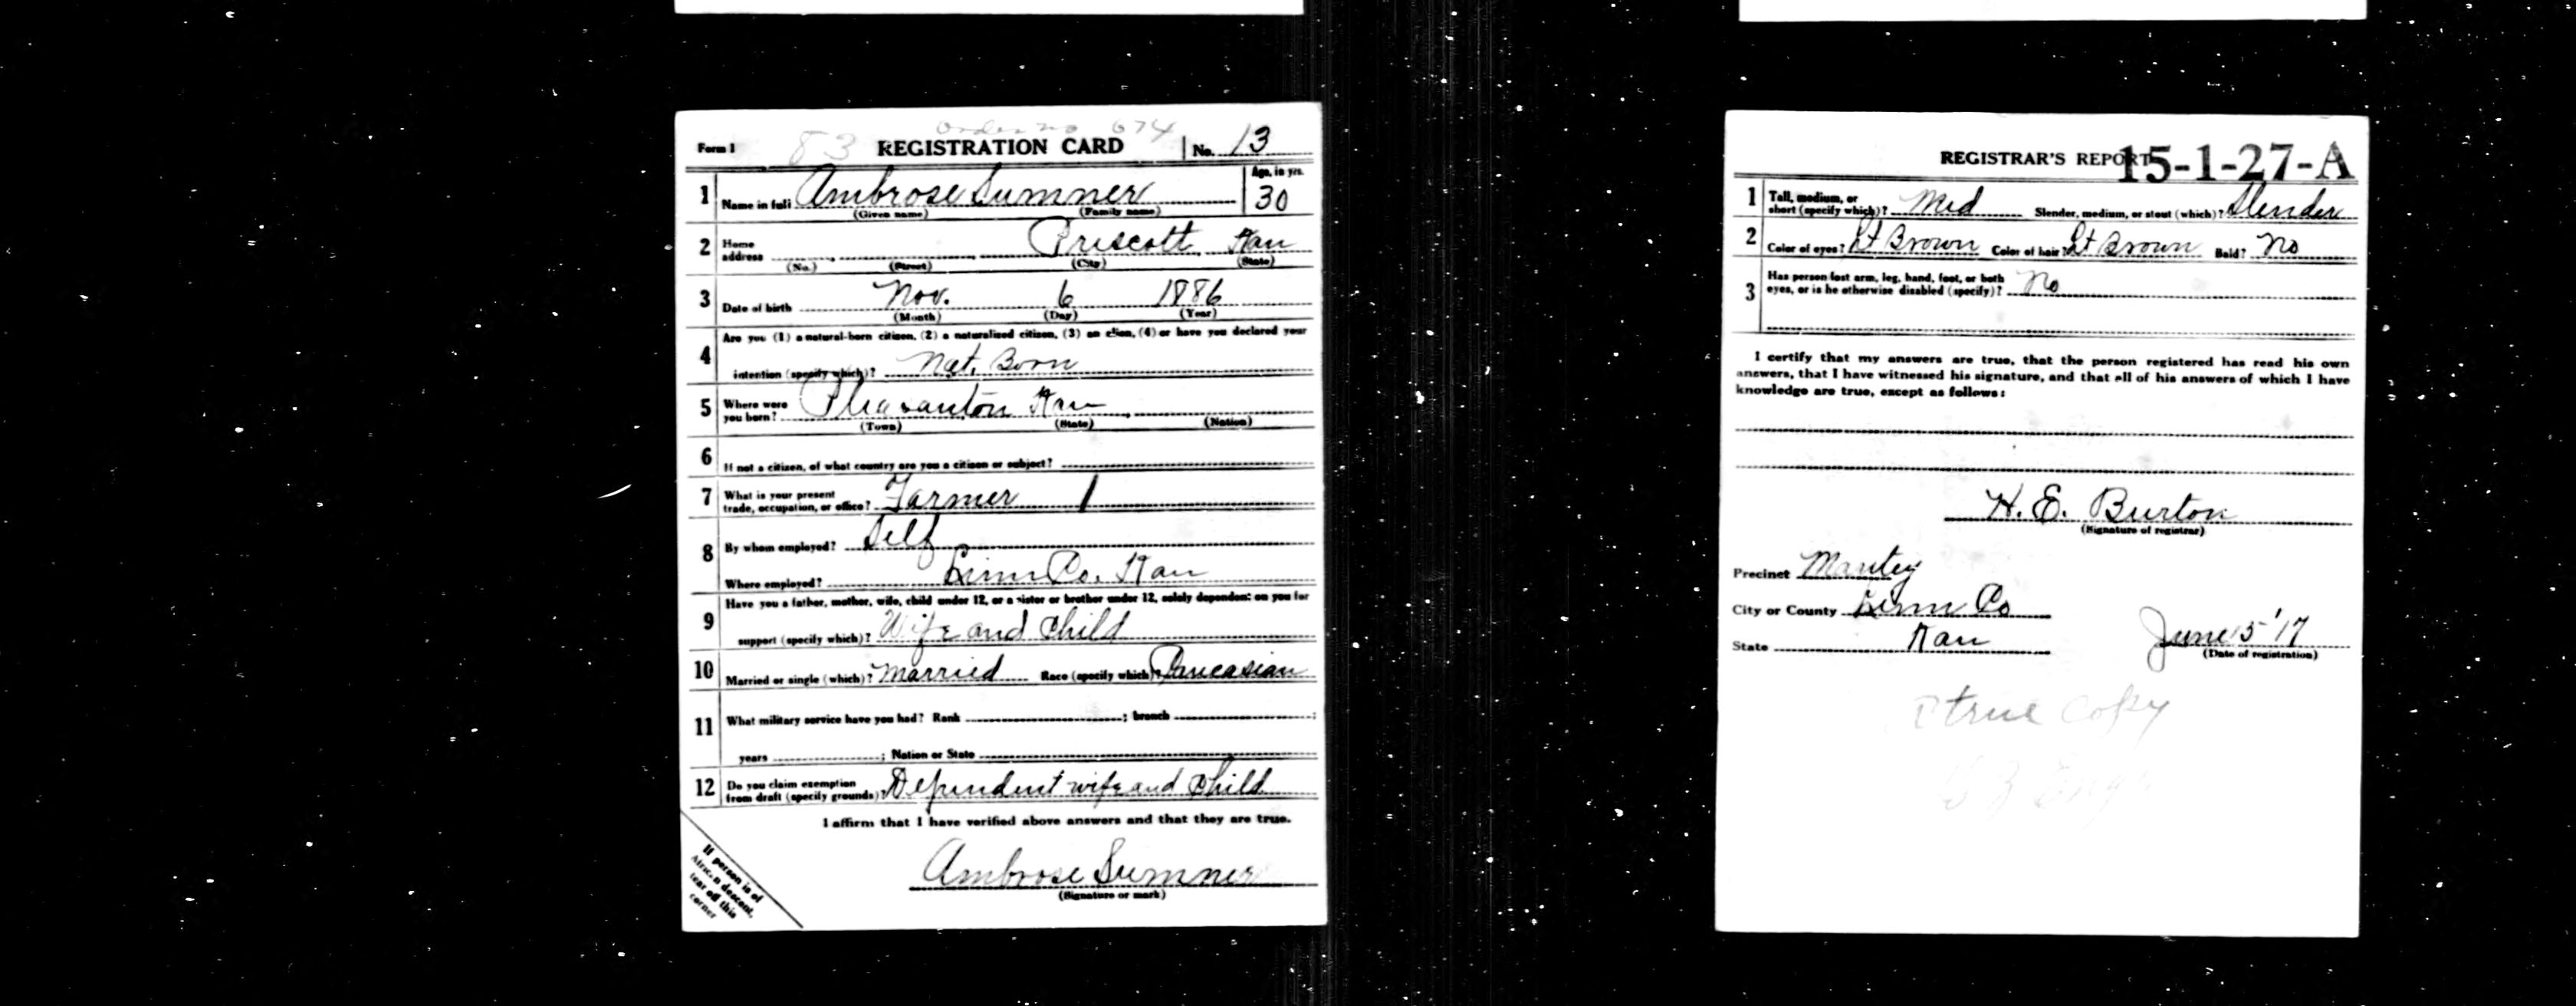 Order no 674
Form 1 83 REGISTRATION CARD No. 13
1 Name in full Ambrose Sumner Age, in yrs. 30
(Given name) (Family name)
2 Home address Priscott Kan
(No.) (Street) (City) (State)
3 Date of birth Nov. 6 1886
(Month) (Day) (Year)
4 Are you (1) a natural-born citizen, (2) a naturalized citizen, (3) an alien, (4) or have you declared your
intention (specify which)? Nat. Born
5 Where were you born? Pleasanton Kan
(Town) (State) (Nation)
6 If not a citizen, of what country are you a citizen or subject?
7 What is your present trade, occupation, or office? Farmer 1
8 By whom employed? Self
Where employed? Linn Co. Kan
9 Have you a father, mother, wife, child under 12, or a sister or brother under 12, solely dependent on you for
support (specify which)? Wife and Child
10 Married or single (which)? Married Race (specify which)? Caucasian
11 What military service have you had? Rank ; branch ;
years ; Nation or State
12 Do you claim exemption from draft (specify grounds)? Dependent wife and Child
I affirm that I have verified above answers and that they are true.
Ambrose Sumner
(Signature or mark)
If person is of
African descent,
tear off this
corner
REGISTRAR'S REPORT 15-1-27-A
1 Tall, medium, or short (specify which)? Med Slender, medium, or stout (which)? Slender
2 Color of eyes? Lt Brown Color of hair? Lt Brown Bald? No
3 Has person lost arm, leg, hand, foot, or both eyes, or is he otherwise disabled (specify)? No
I certify that my answers are true, that the person registered has read his own
answers, that I have witnessed his signature, and that all of his answers of which I have
knowledge are true, except as follows:
H. E. Burton
(Signature of registrar)
Precinct Mantey
City or County Linn Co
State Kan June 5 '17
(Date of registration)
true copy